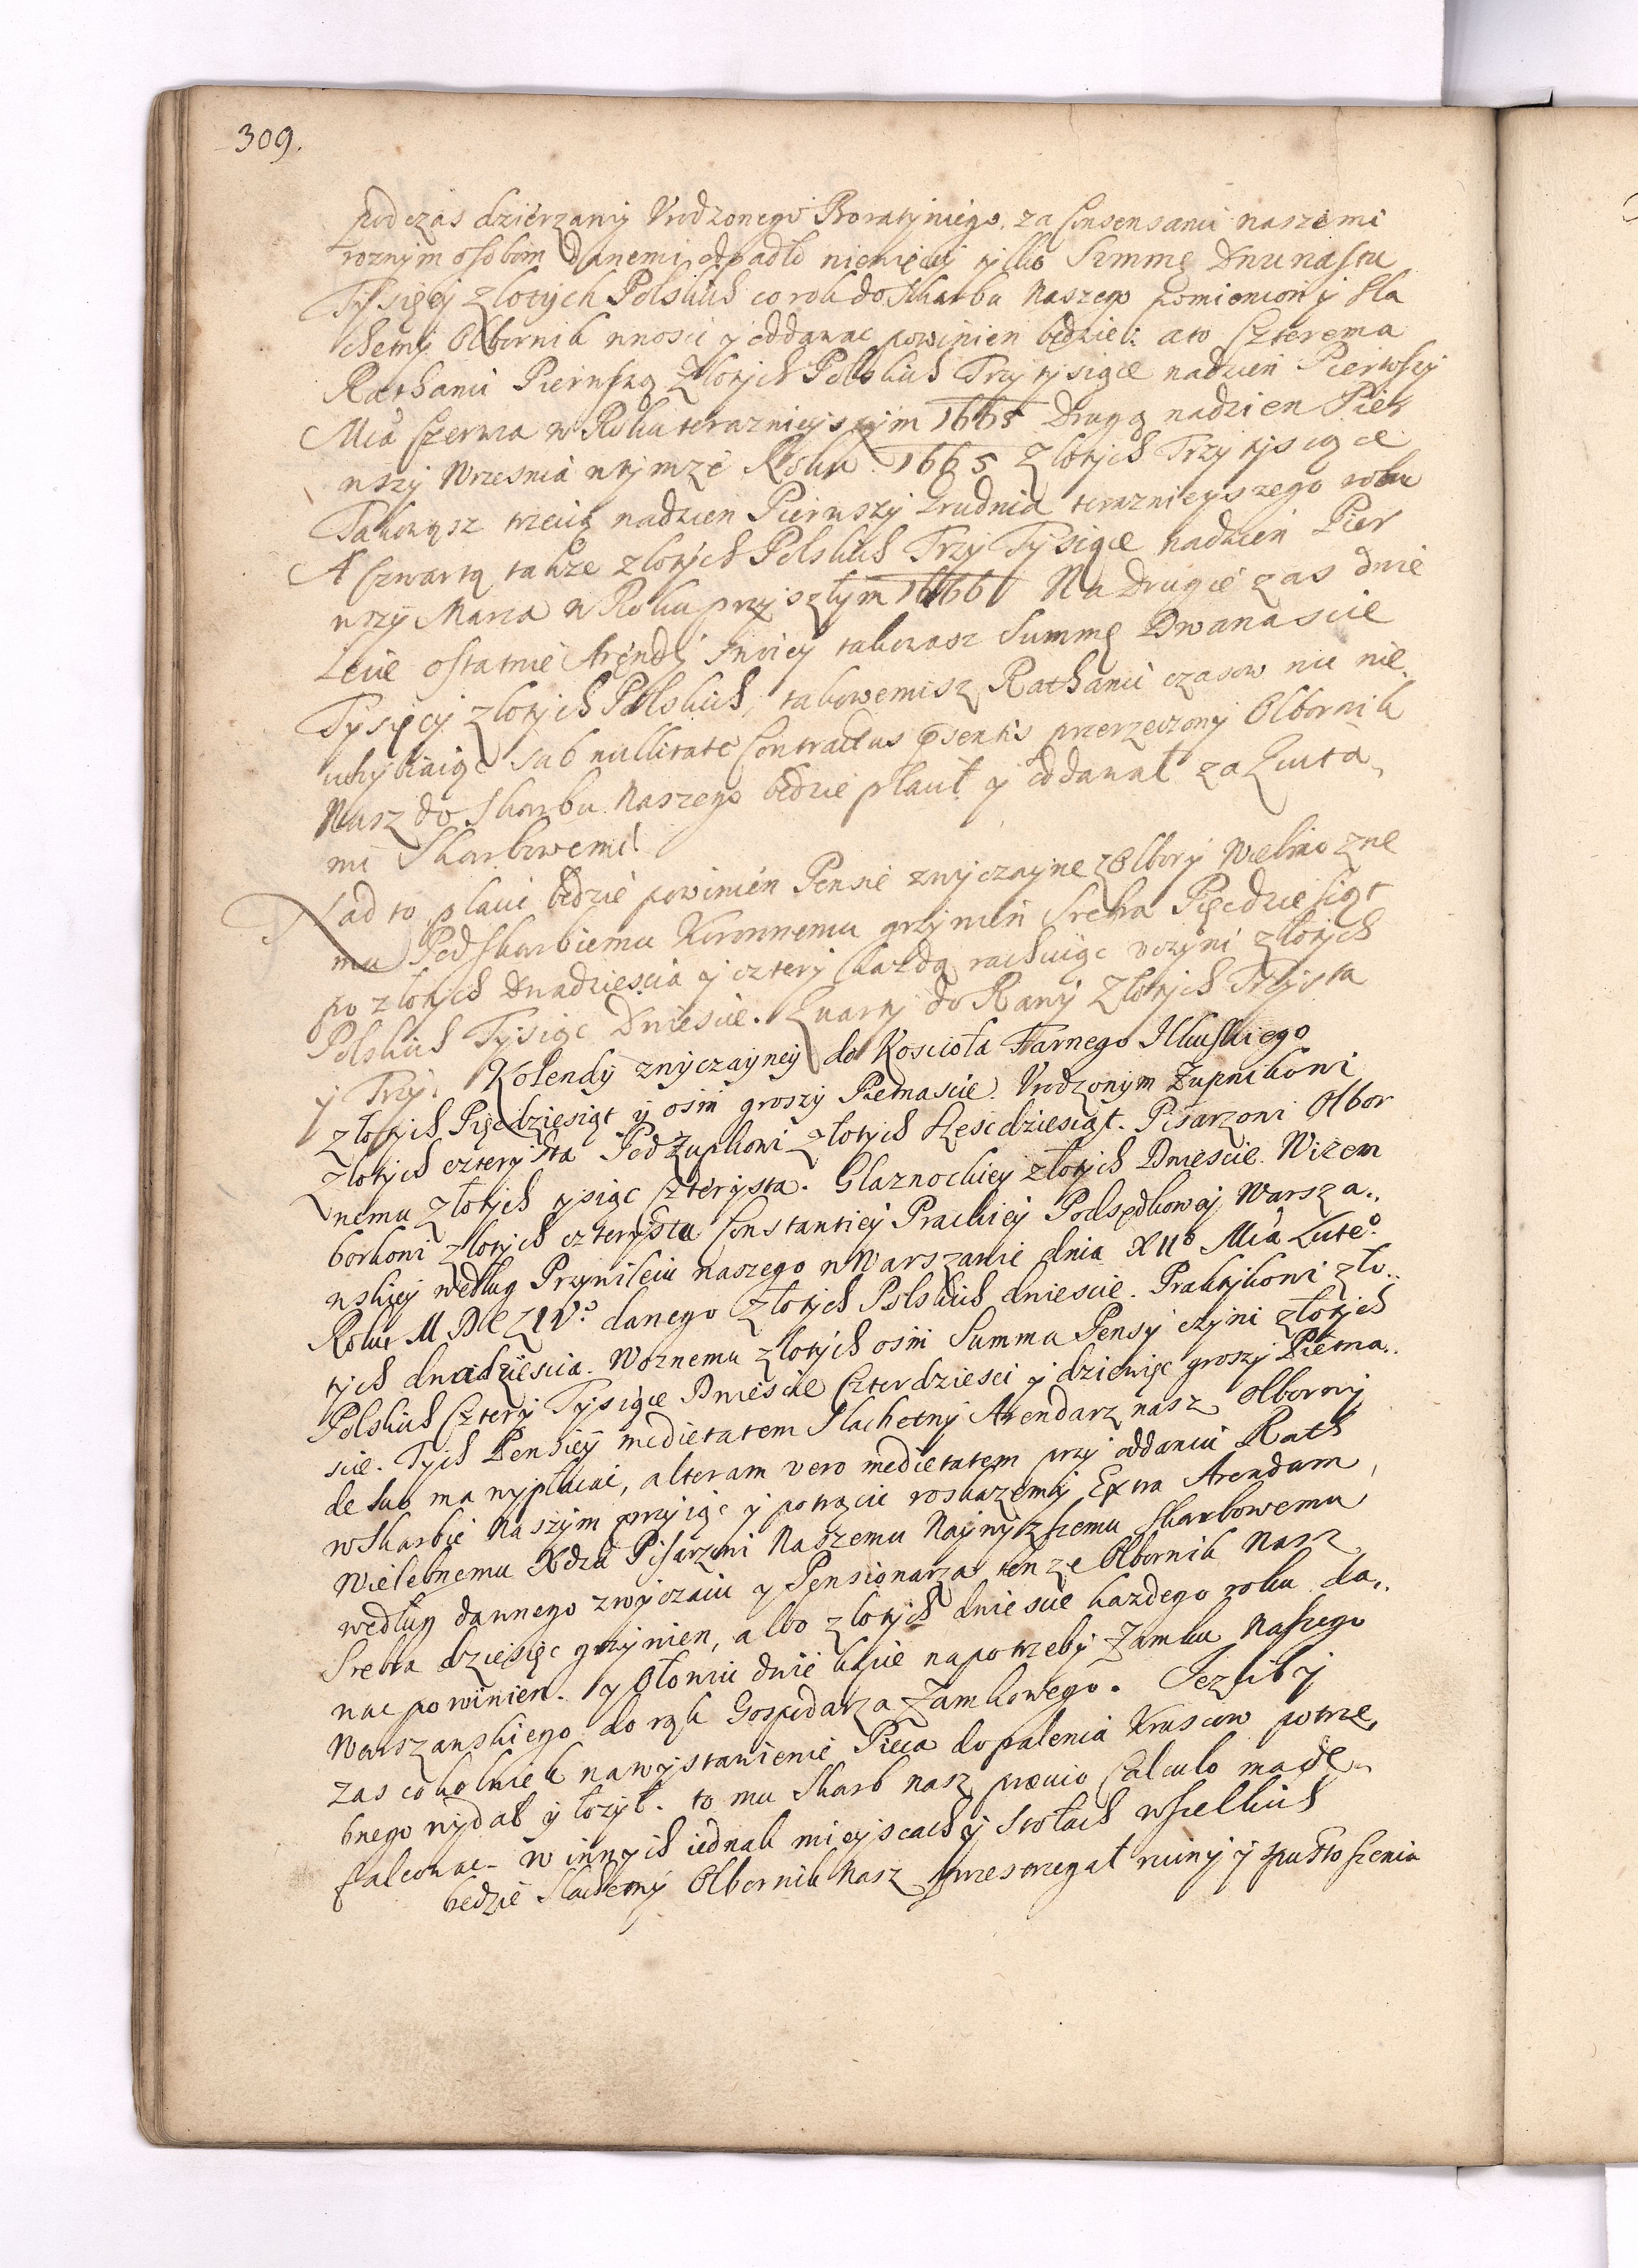 309.
podczas dzierzawy Vrodzonego Boratyniego, za Consensami naszemi
roznym osobom danemi, odpadło niewięcey tylko Summę Dwunastu
Tysięcy złotych Polskich co rok do Skarbu Naszego pomieniony Sla
chetny Olbornik wnosic y oddawac powinien będzie: a to Czterema
Rathami Pierwszą Złotych Polskich Trzy tysiące na dzien Pierwszy
Mca Czerwca w Roku terazniejszym 1665 Drugą na dzien Pier
wszy Wrzesnia w tymze Roku 1665 Złotych Trzy tysiące
Takowąsz trzecią na dzien Pierwszy Grudnia terazniejszego roku
A Czwartą takze złotych Polskich Trzy Tysiące na dzien Pier
wszy Marca w Roku przyszłym 1666 Na Drugie zas dwie
Lecie ostatnie Arendy swoiey takowasz Summę Dwanascie
Tysięcy złotych Polskich, takowemisz Rathami czasow nic nie
uchybiaiąc sub nullitate Contractus psentis przerzeczony Olbornik
Nasz do Skarbu Naszego będzie płacił y oddawał za Quita,,
mi Skarbowemi.
Nad to płacic będzie powinien Pensie zwyczayne z Olbory Wielmozne
mu Podskarbiemu Koronnemu grzywien Srebra Pięcdziesiąt
po złotych Dwadziescia y cztery Każdą rachuiąc uczyni złotych
Polskich Tysiąc Dwiescie. Quarty do Rawy Złotych Trzysta
y Trzy. Kolendy zwyczayney do Kosciola Farnego Ilkuskiego
złotych Pięcdziesiąt y osm groszy Pietnascie. Vrodzonym Zupnikowi
złotych czterysta Podzupkowi złotych Szescdziesiąt. Pisarzowi Olbor
nemu złotych tysiąc czterysta. Glaznockiey złotych Dwiescie. Wizem
borkowi złotych czterysta Constantiey Prackiey Podsędkowey Warsza,,
wskiey według Przywileiu naszego w Warszawie dnia XIIo Mca Luteo
Roku MDCLIVo danego złotych Polskich dwiescie. Praktykowi zło,,
tych dwadziescia. Woznemu złotych osm Summa Pensy czyni złotych
Polskich Cztery Tysiące Dwiescie Czterdziesci y dziewięc groszy Pietna,,
scie. Tych Pensiey medietatem Slachetny Arendarz nasz Olborny
de suo ma wypłacac, alteram vero medietatem przy oddaniu Rath
w Skarbie Naszym przyiąc y potrącic roskazemy Extra Arendam
Wielebnemu Xdzu Pisarzowi Naszemu Naywyzszemu Skarbowemu
według dawnego zwyczaiu y Pensionarza tenze Olbornik Nasz
Srebra dziesięc grzywien, albo złotych dwiescie kazdego roku da,,
wac powinien. y Ołowiu dwie kupie na potrzeby Zamku Naszego
Warszawskiego do rąk Gospodarza Zamkowego. Jezliby
zas cokolwiek na wystawienie Pieca do palenia Kruscow potrze,,
bnego wydał y łozył. to mu Skarb nasz prævio Calculo ma de,,
falcowac. w innych iednak mieyscach y Stołach wszelkich
będzie Slachetny Olbornik Nasz przestrzegał ruiny y spustoszenia